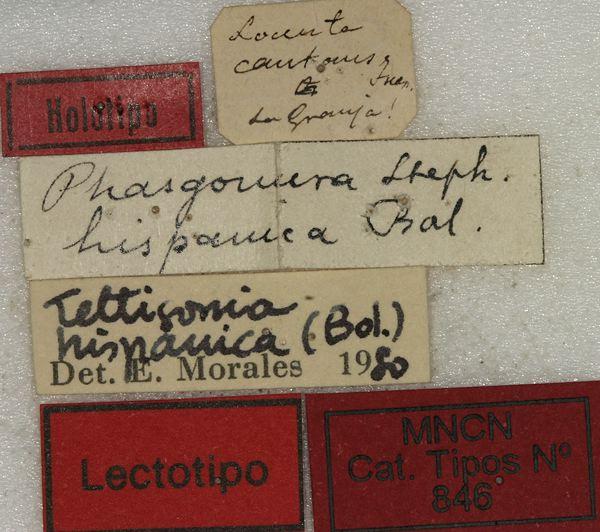 Locusta
cantans
Fuen.
La Granja!
Holotipo
Phasgonura Steph.
hispanica Bol.
Tettigonia
hispánica (Bol.)
Det. E. Morales 1980
Lectotipo
MNCN
Cat. Tipos Nº
846